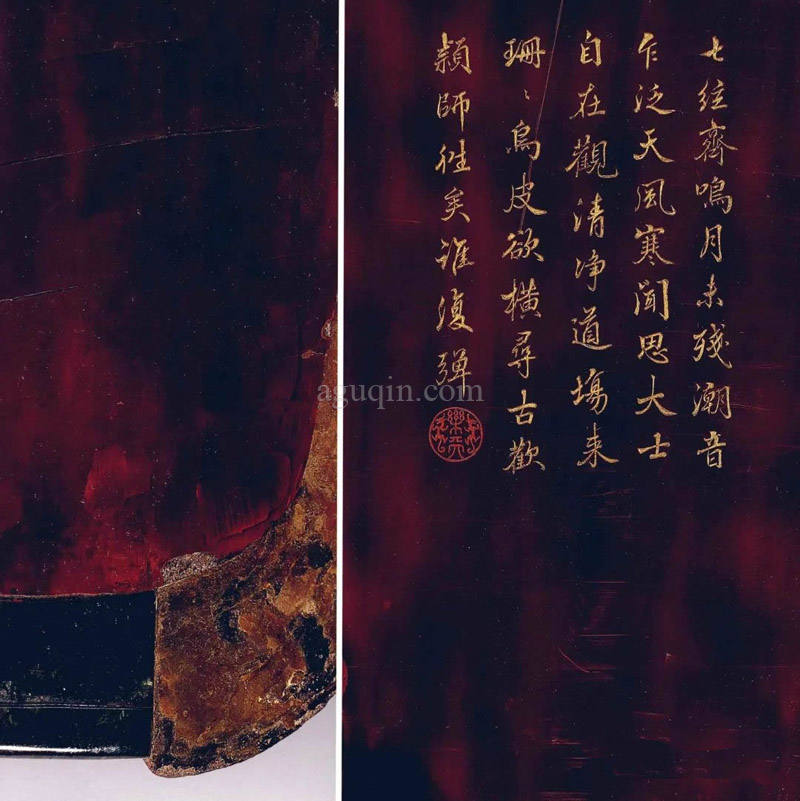 七絃齊鳴月未殘潮音
乍泛天風寒聞思大士
自在觀清净道塲来
珊〻烏皮欲橫尋古歡
潁師往矣誰復彈
aguqin.com